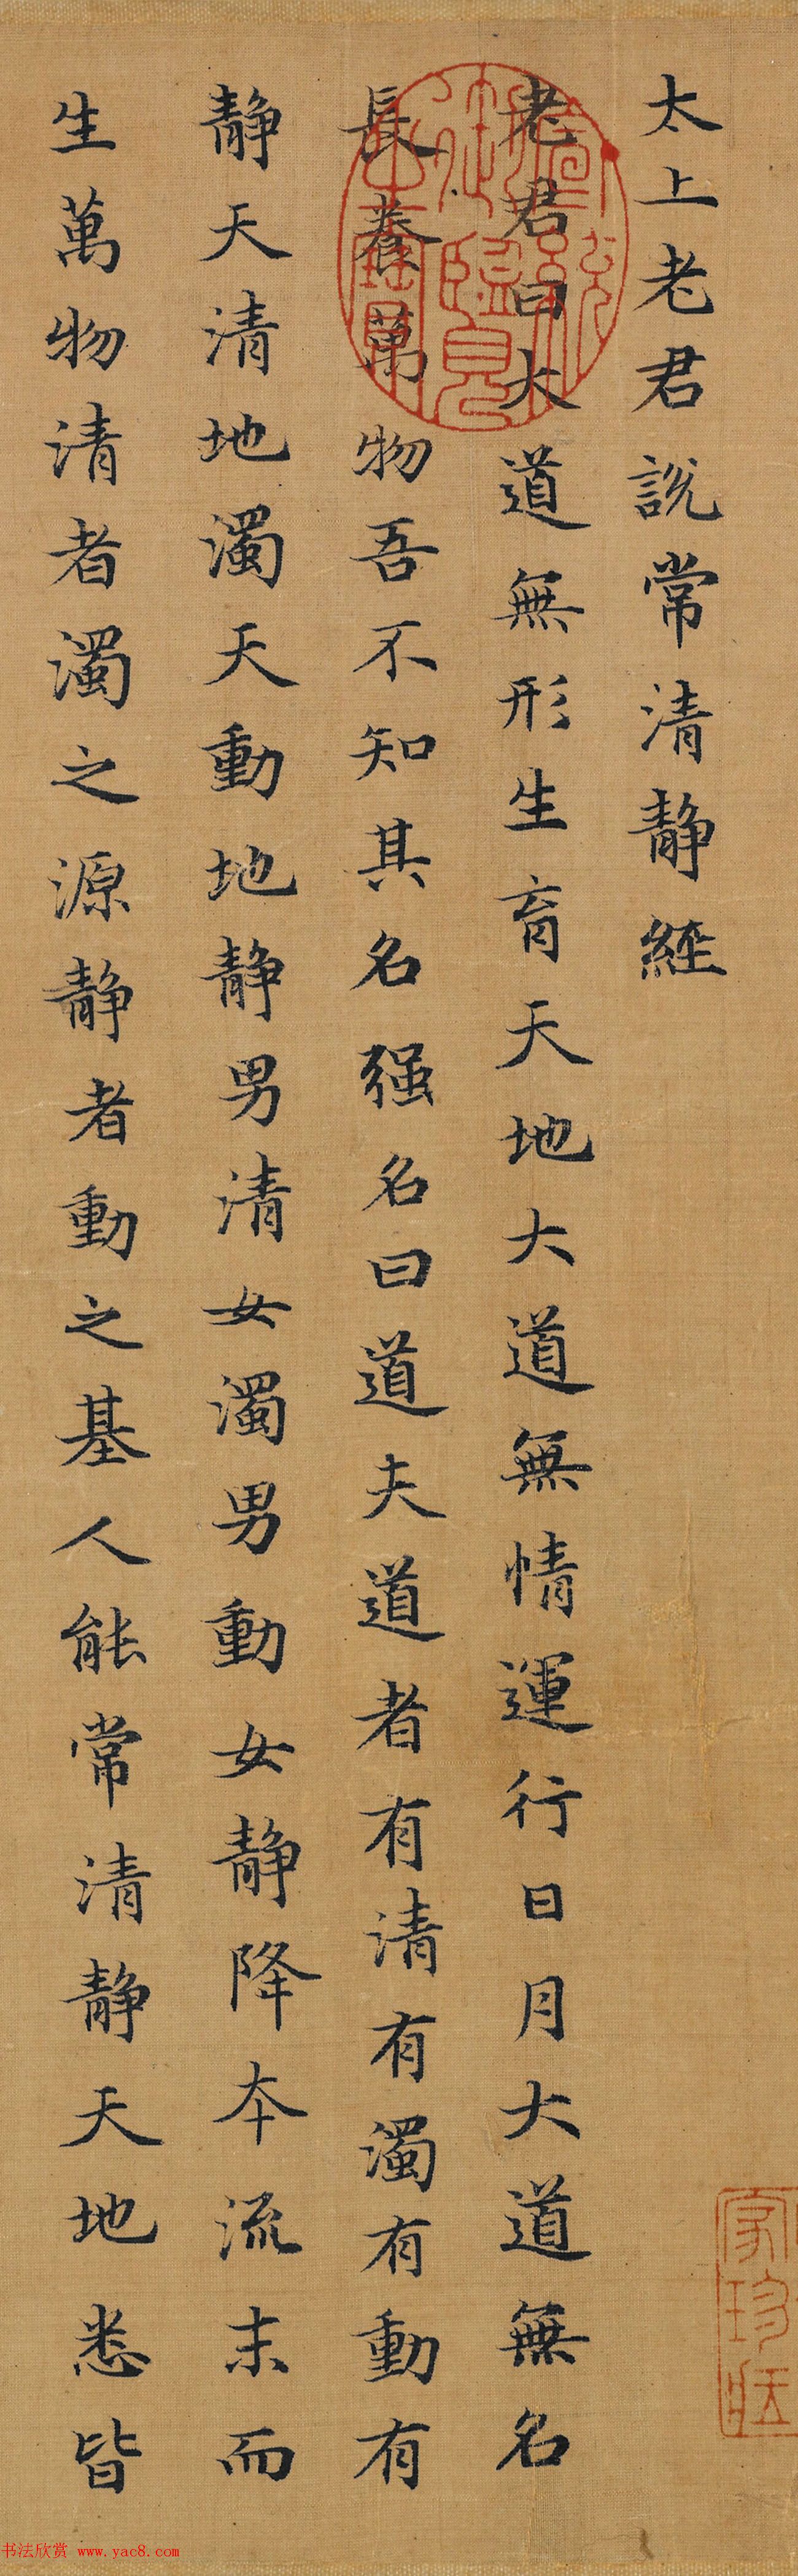 太上老君說常清靜經
老君曰大道無形生育天地大道無情運行日月大道無名
長養萬物吾不知其名强名曰道夫道者有清有濁有動有
靜天清地濁天動地靜男清女濁男動女靜降本流末而
生萬物清者濁之源靜者動之基人能常清靜天地悉皆
宣統御覽之寶
家珍
书法欣赏 www.yac8.com